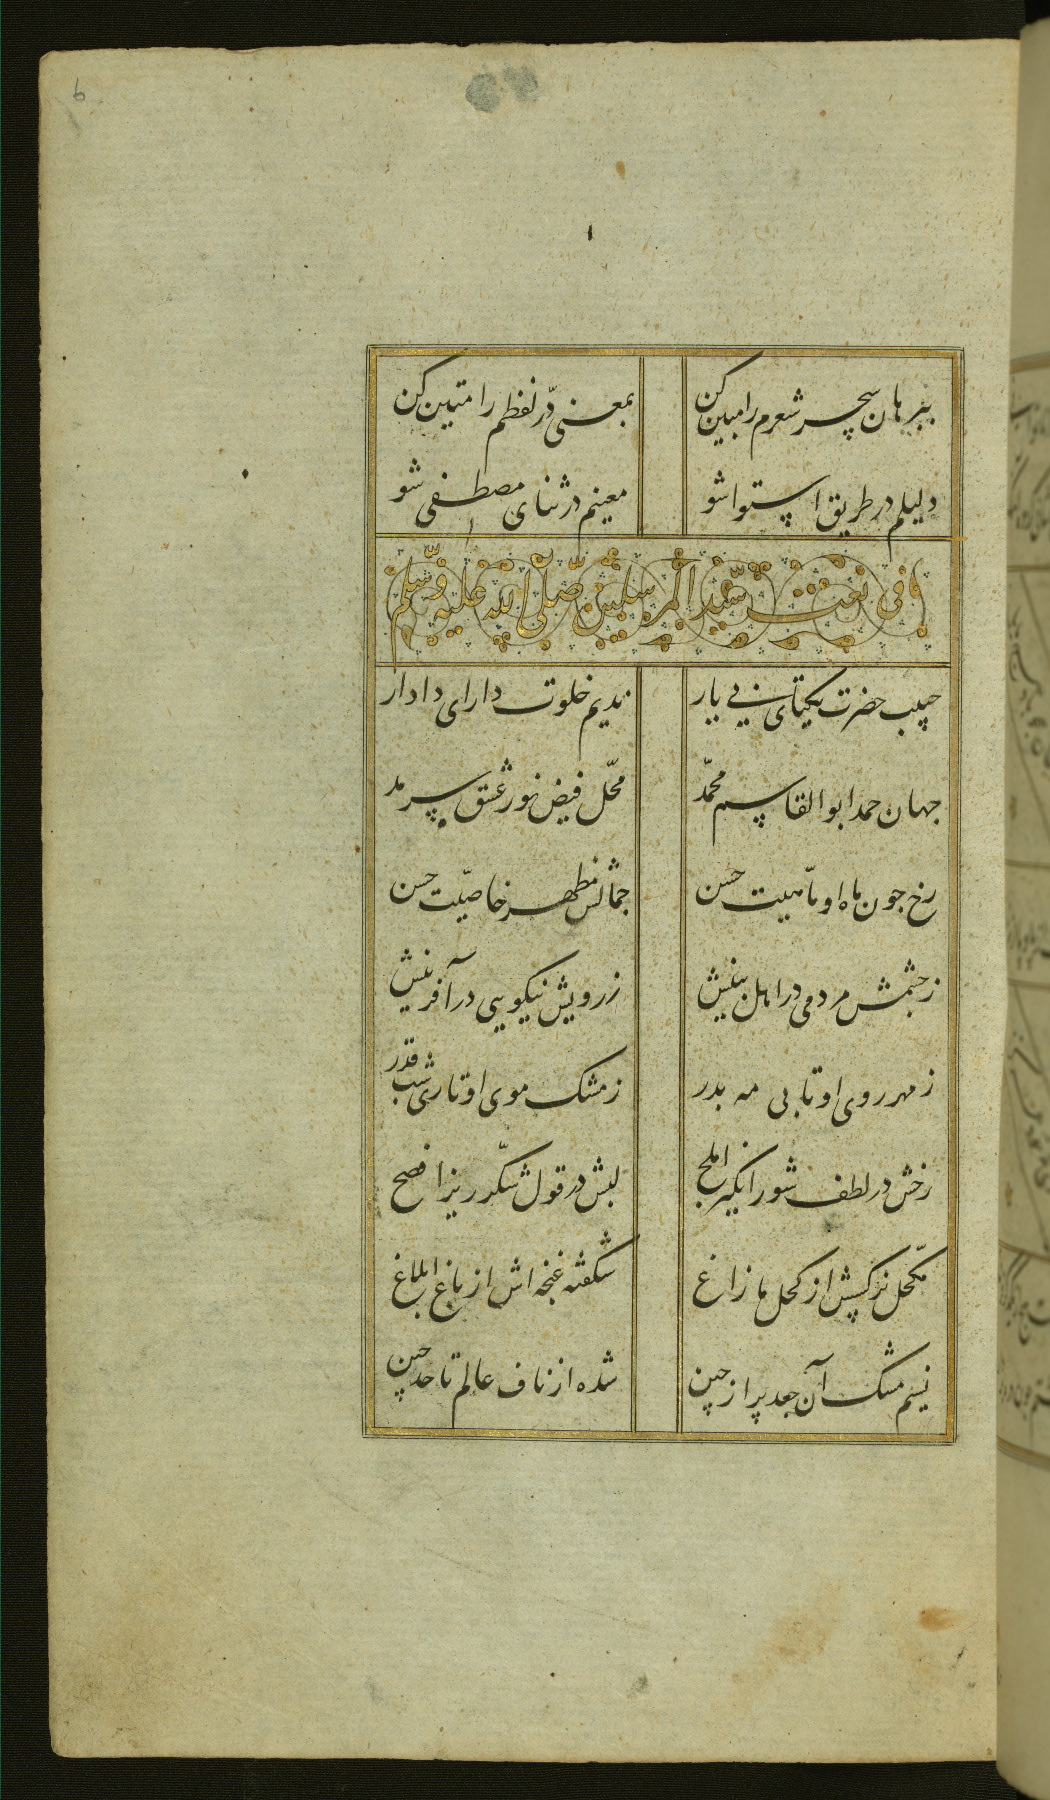 6
ببرهان سحر شعرم را مبین کن بمعنی دّر لفظم را متین کن
دلیلم در طریق استوا شو معینم در ثنای مصطفی شو
فی نعت سیّد المرسلین صلّی الله علیه وسّلم
حبیب حضرت یکتای بی یار ندیم خلوت دارای دادار
جهان حمد ابوالقاسم محمّد محّل فیض نور عشق سرمد
رخ جون ماه او ماهیت حسن جمالش مظهر خاصیّت حسن
زجشمش مردمی در اهل بینش زرویش نیکویی در آفرینش
زمهر روی او تابی مه بدر زمشک موی او تاری شب قدر
رخش در لطف شورانگیز املح لبش در قول شکّرریز افصح
مکّحل نرکسش از کحل ما زاغ شکفته غنجه اش از باغ ابلاغ
نسیم مشک آن جعد پر از جین شده از ناف عالم تا حد جین